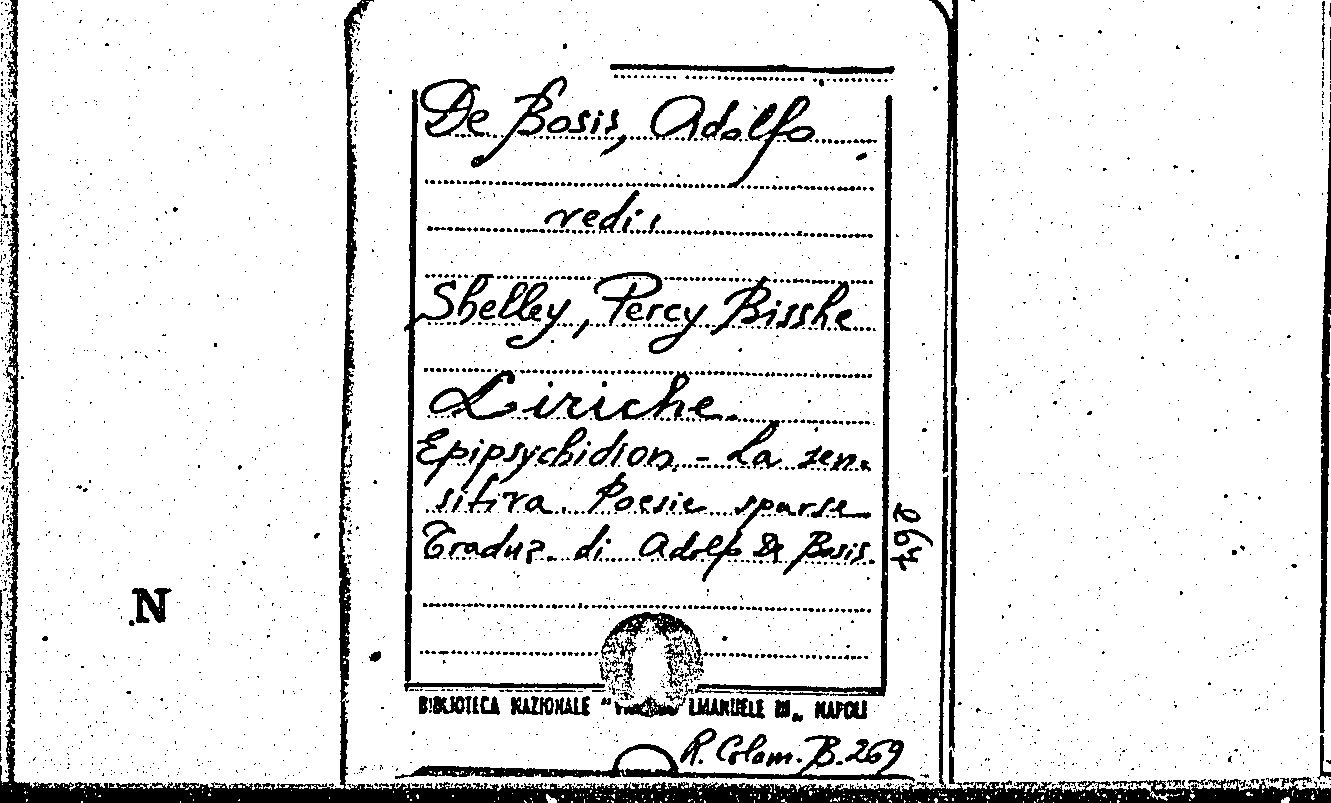 De Bosis, Adolfo
vedi:
Shelley, Percy Bisshe
Liriche.
Epipsychidion. - La sen-
sitiva. Poesie sparse
Traduz. di Adolfo De Bosis.
264
N
BIBLIOTECA NAZIONALE " EMANUELE III„ NAPOLI
R. Colam. B. 269